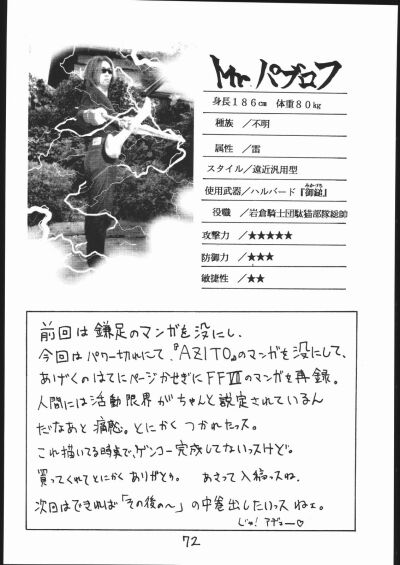 Mr.パブロフ
身長186cm 体重80kg
種族 ／不明
属性 ／雷
スタイル／遠近汎用型
使用武器／ハルバード『御鎚』
役職 ／岩倉騎士団駄猫部隊総帥
攻撃力 ／★★★★★
防御力 ／★★★
敏捷性 ／★★
前回は鎌足のマンガを没にし、
今回はパワー切れにて、『AZITO』のマンガを没にして、
あげくのはてにページかせぎにFFⅦのマンガを再録。
人間には活動限界がちゃんと設定されているん
だなあと痛感。とにかくつかれたっス。
これ描いてる時点で、ゲンコー完成してないっスけど。
買ってくれてとにかくありがとう。 あさって入稿っスね。
次回はできれば「その後の〜」の中巻出したいっスねェ。
じゃ! アデュー♡
72